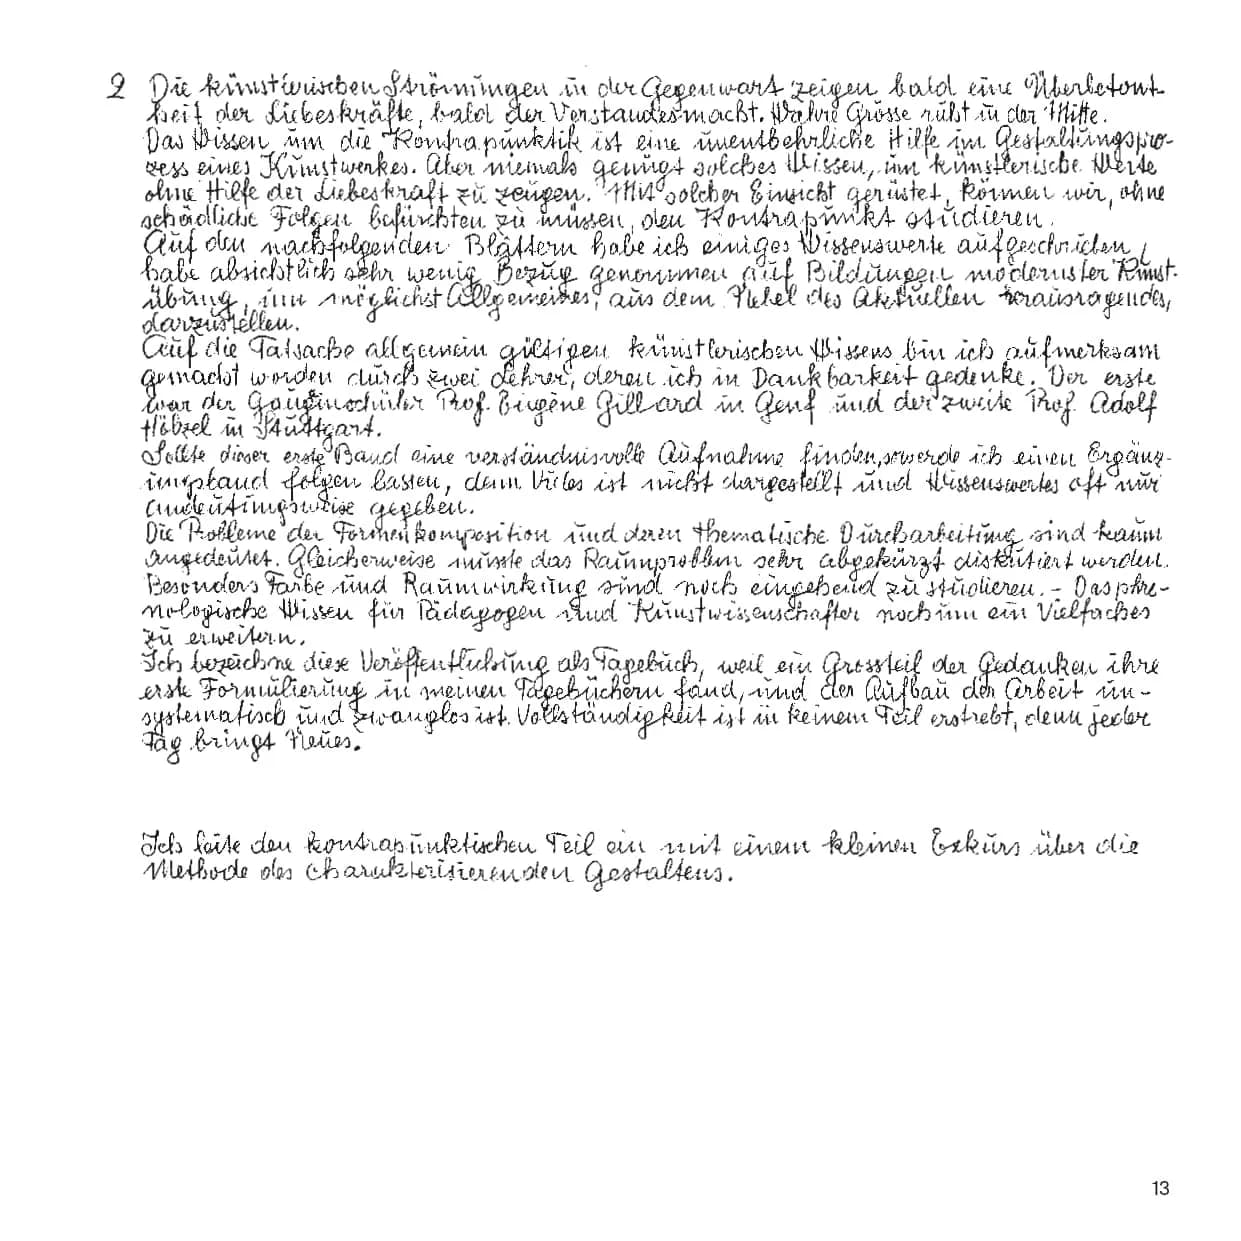 2 Die künstlerischen Strömungen in der Gegenwart zeigen bald eine Überbetont-
heit der Liebeskräfte, bald der Verstandesmacht. Wahre Grösse ruht in der Mitte.
Das Wissen um die Kontrapunktik ist eine unentbehrliche Hilfe im Gestaltungspro-
zess eines Kunstwerkes. Aber niemals genügt solches Wissen, um künstlerische Werte
ohne Hilfe der Liebeskraft zu zeugen. Mit solcher Einsicht gerüstet, können wir, ohne
schädliche Folgen befürchten zu müssen, den Kontrapunkt studieren.
Auf den nachfolgenden Blättern habe ich einiges Wissenswerte aufgeschrieben,
habe absichtlich sehr wenig Bezug genommen auf Bildungen modernster Kunst-
übung, um möglichst Allgemeines, aus dem Nebel des Aktuellen herausragendes,
darzustellen.
Auf die Tatsache allgemein gültigen künstlerischen Wissens bin ich aufmerksam
gemacht worden durch zwei Lehrer, deren ich in Dankbarkeit gedenke. Der erste
war der Gauginschüler Prof. Eugène Gilliard in Genf und der zweite Prof. Adolf
Hölzel in Stuttgart.
Sollte dieser erste Band eine verständnisvolle Aufnahme finden, so werde ich einen Ergänz-
ungsband folgen lassen, denn Vieles ist nicht dargestellt und Wissenswertes oft nur
andeutungsweise gegeben.
Die Probleme der Formenkomposition und deren thematische Durcharbeitung sind kaum
angedeutet. Gleicherweise musste das Raumproblem sehr abgekürzt diskutiert werden.
Besonders Farbe und Raumwirkung sind noch eingehend zu studieren. – Das phre-
nologische Wissen für Pädagogen und Kunstwissenschafter noch um ein Vielfaches
zu erweitern.
Ich bezeichne diese Veröffentlichung als Tagebuch, weil ein Grossteil der Gedanken ihre
erste Formulierung in meinen Tagebüchern fand, und der Aufbau der Arbeit un-
systematisch und zwanglos ist. Vollständigkeit ist in keinem Teil erstrebt, denn jeder
Tag bringt Neues.
Ich leite den kontrapunktischen Teil ein mit einem kleinen Exkurs über die
Methode des charakterisierenden Gestaltens.
13